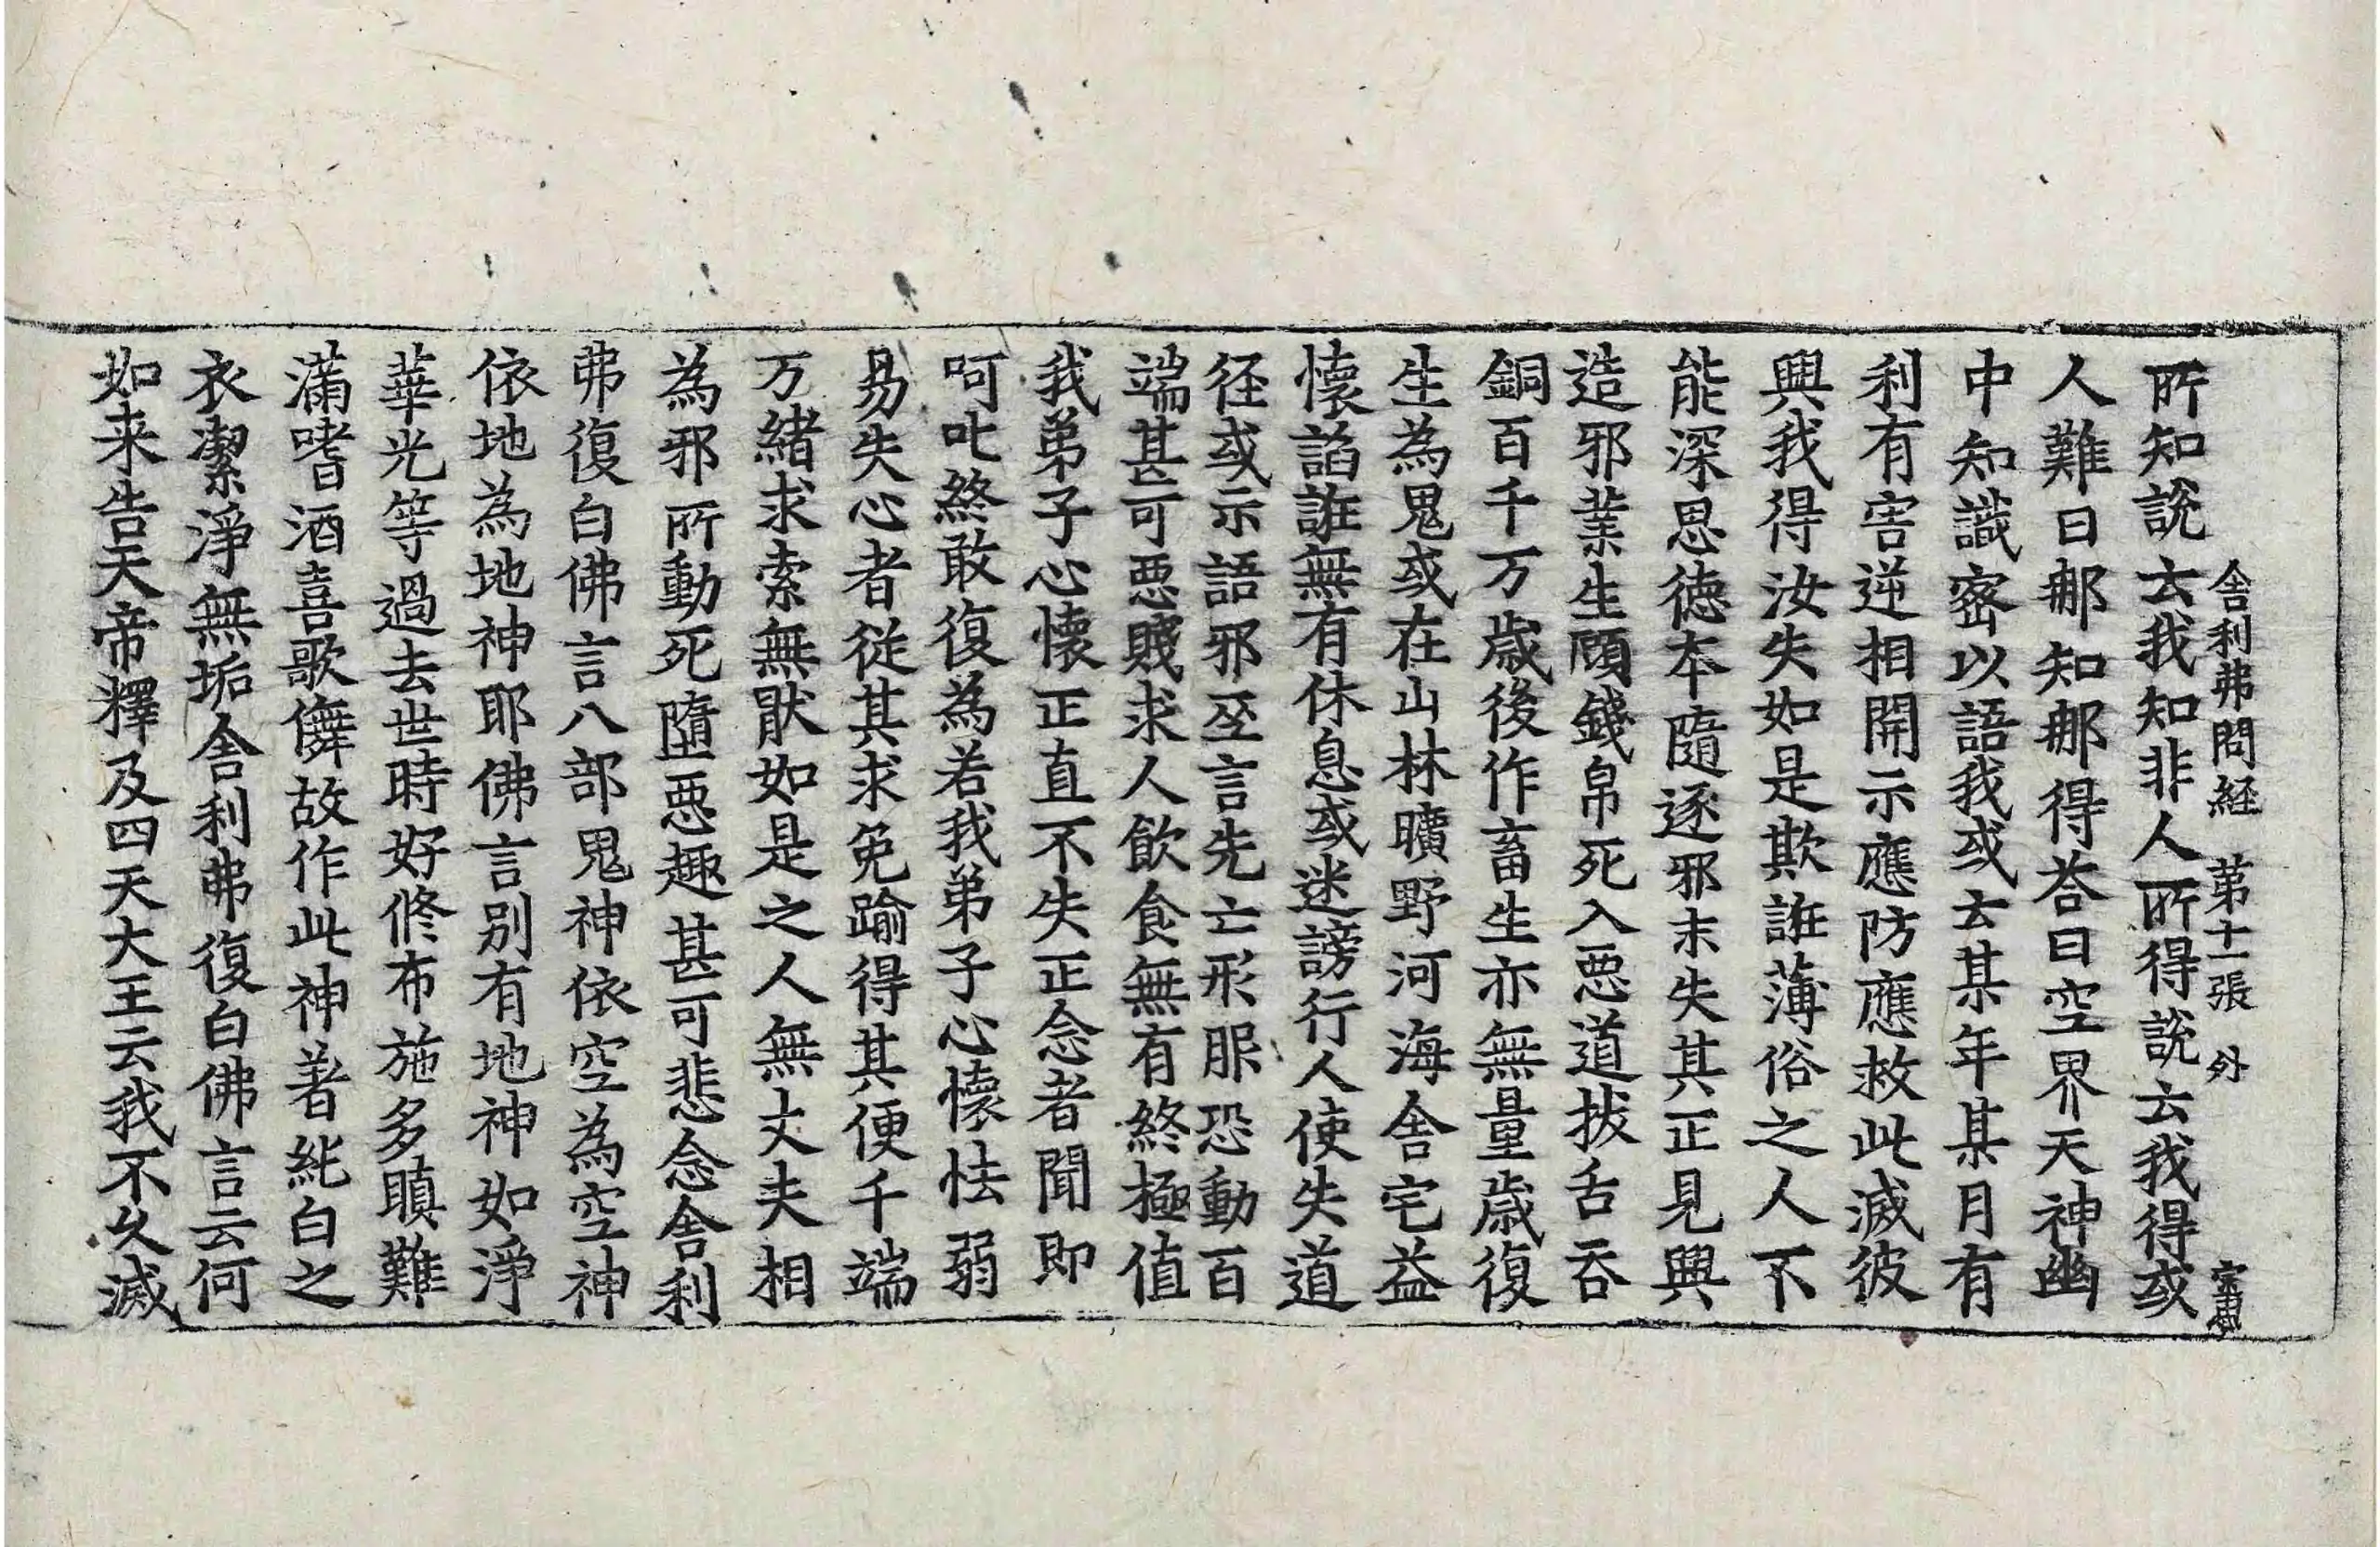 舎利弗問経 第十一張 外
所知說去我知非人所得說云我得或
人難日那知那得荅曰空界天神幽
中知識密以語我或云某年某月有
利有害逆相開示應防應救此滅彼
興我得汝失如是欺誑薄俗之人不
能深思徳本隨逐邪末失其正見興
造邪業生願錢帛死入悪道抜舌吞
銅百千万歳後作畜生亦無量歳復
生為鬼或在山林曠野河海舎宅益
懷諂誑無有休息或迷謗行人使失道
径或示語邪巫言先亡形服恐動百
端甚可悪賤求人飲食無有終極值
我弟子心懐正直不失正念者聞即
呵叱終敢復為若我弟子心懷怯弱
易失心者従其求免踰得其便千端
万緒求索無猒如是之人無丈夫相
為邪所動死墮悪趣甚可悲念舎利
弗復白佛言八部鬼神依空為空神
依地為地神耶佛言别有地神如淨
華光等過去世時好修布施多瞋難
滿嗜酒喜歌儛故作此神著純白之
衣潔淨無垢舎利弗復白佛言云何
如来告天帝釋及四天大王云我不久滅